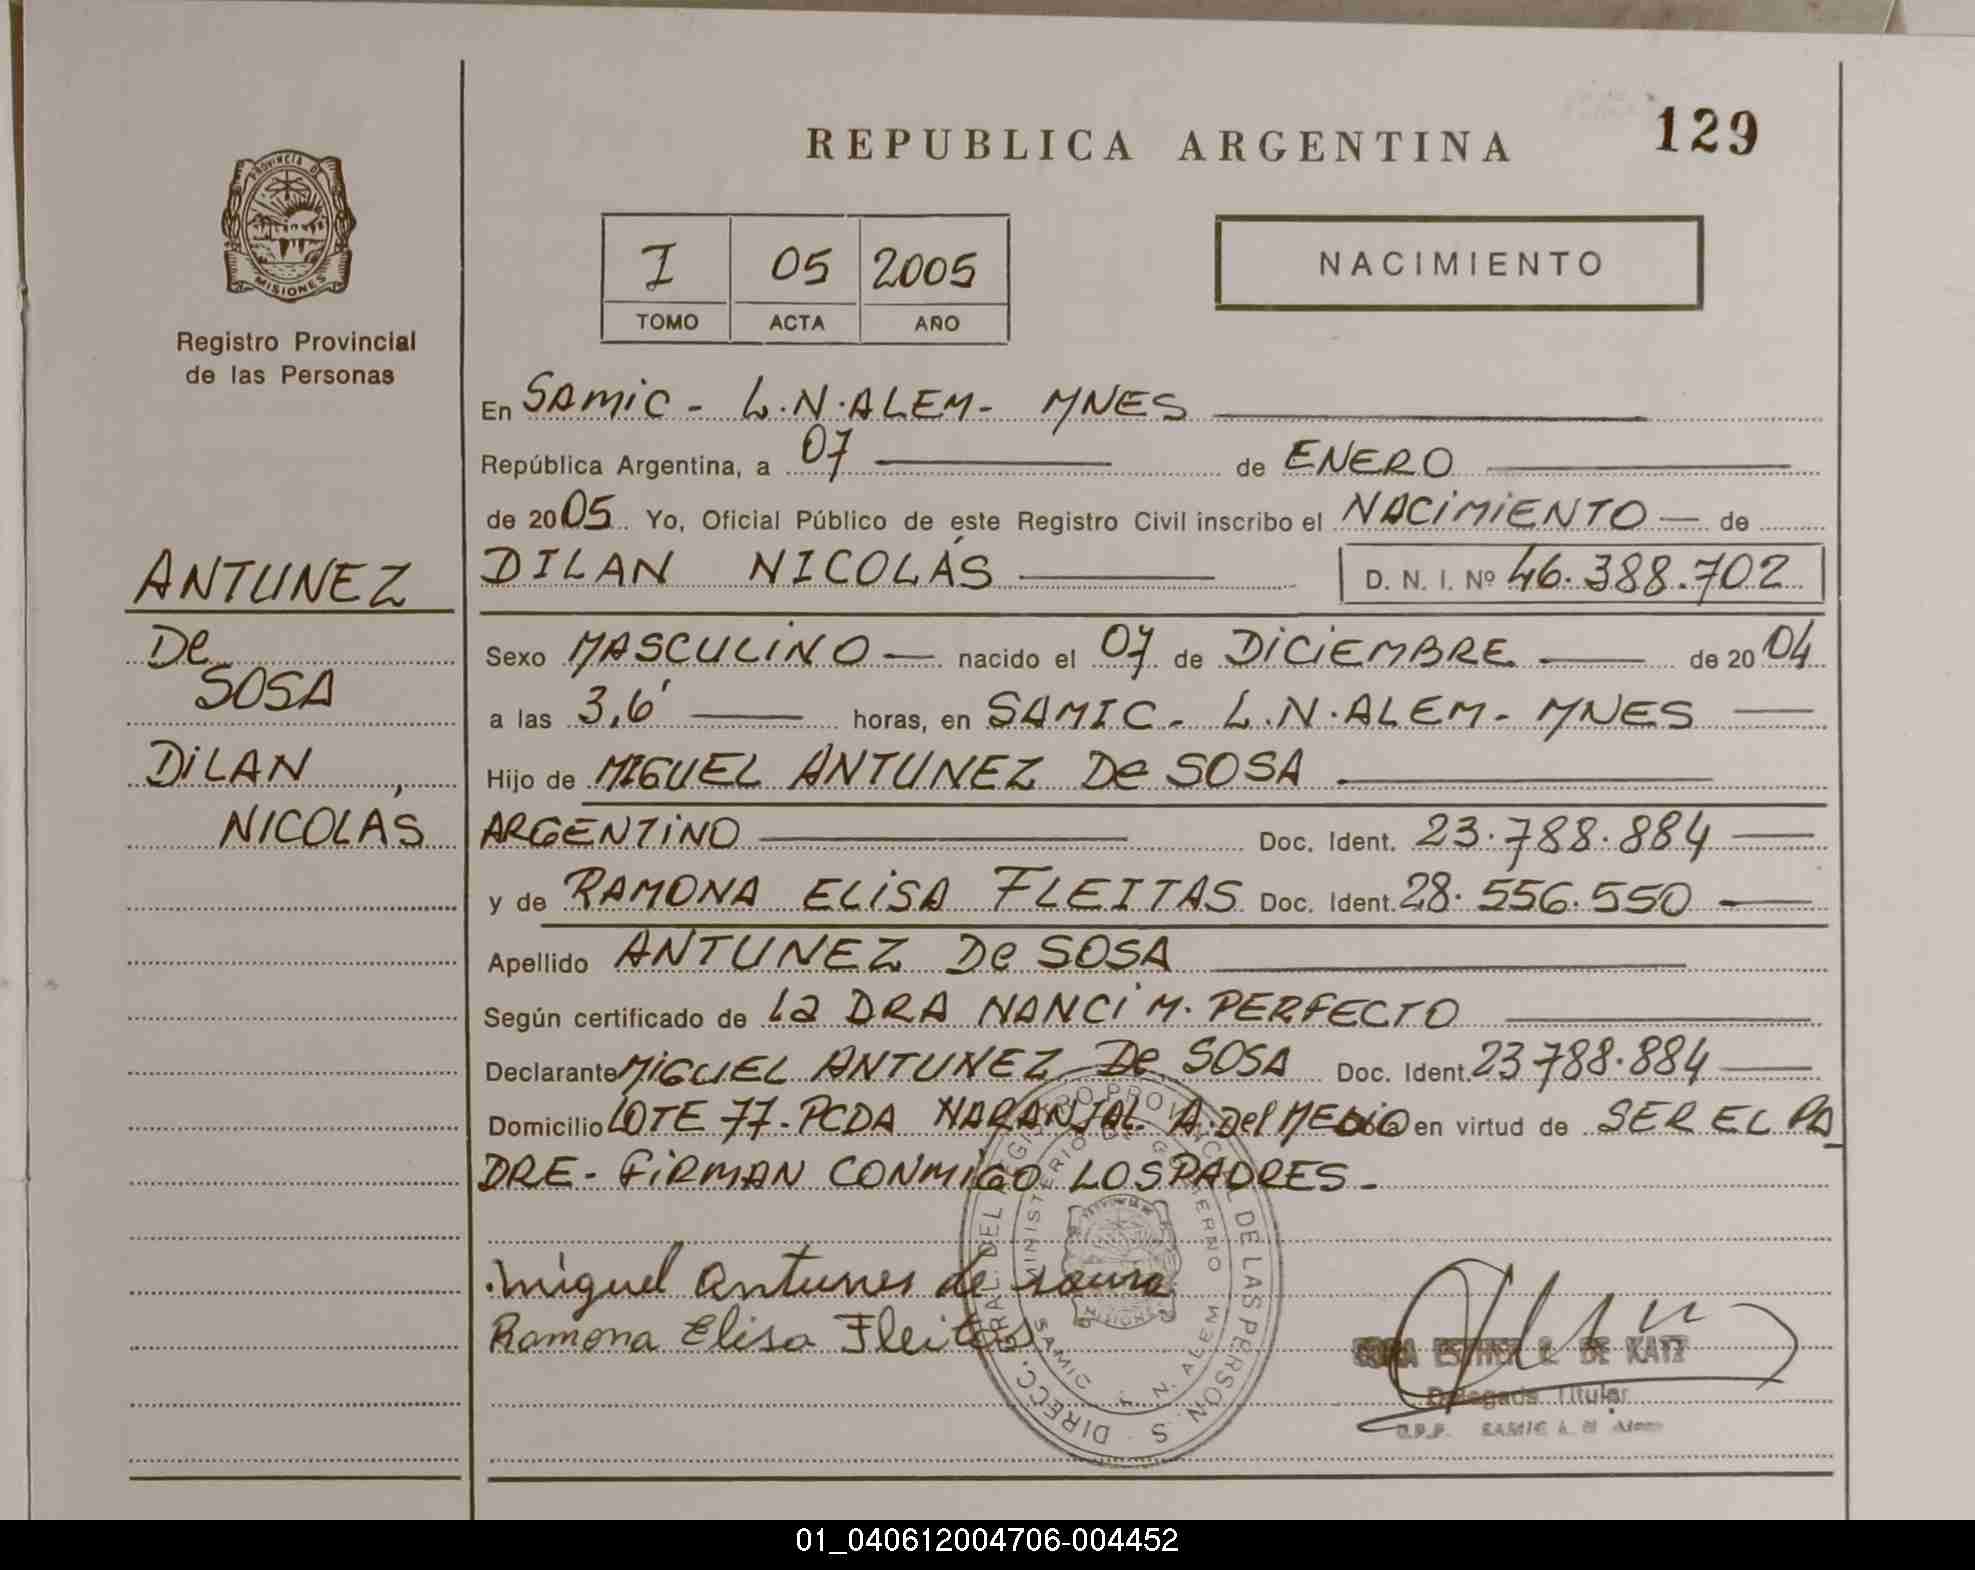 REPUBLICA ARGENTINA
129
PROVINCIA DE
MISIONES
Registro Provincial
de las Personas
I 05 2005
TOMO ACTA AÑO
NACIMIENTO
En SAMIC - L.N.ALEM- MNES
República Argentina, a 07 de ENERO
de 2005 Yo, Oficial Público de este Registro Civil inscribo el NACIMIENTO de
DILAN NICOLÁS D. N. I. Nº 46.388.702
ANTUNEZ
De
SOSA
DILAN
NICOLÁS
Sexo MASCULINO nacido el 07 de DICIEMBRE de 2004
a las 3,6' horas, en SAMIC - L.N.ALEM- MNES
Hijo de MIGUEL ANTUNEZ De SOSA
ARGENTINO Doc. Ident. 23.788.884
y de RAMONA ELISA FLEITAS Doc. Ident. 28.556.550
Apellido ANTUNEZ De SOSA
Según certificado de la DRA NANCI M. PERFECTO
Declarante MIGUEL ANTUNEZ De SOSA Doc. Ident. 23.788.884
Domicilio LOTE 77- PCDA NARANJAL. A. Del MEDIO en virtud de SER EL PA
DRE - FIRMAN CONMIGO LOS PADRES -
miguel antunes de sousa
Ramona Elisa Fleitas
DIRECC. GRAL. DEL REGISTRO PROVINCIAL DE LAS PERSONAS
MINISTERIO DE GOBIERNO
SAMIC L. N. ALEM
MISIONES
ESTHER C. DE KATZ
Delegada Titular
R.P.P. SAMIC L. N. Alem
01_040612004706-004452